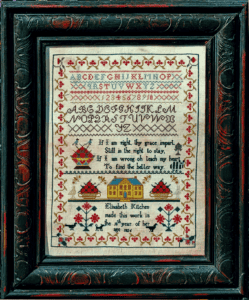 ABCDEFGHIJKLMNOP
QRSTUVWXYZ
12345678910
ABCDEFGHIJKLM
NOPQRSTUVWX
YZ
If I am right, thy grace impart,
Still in the right to stay,
If I am wrong oh teach my heart
To find the better way.
Elizabeth Kitchen
made this work in
the year of her
age